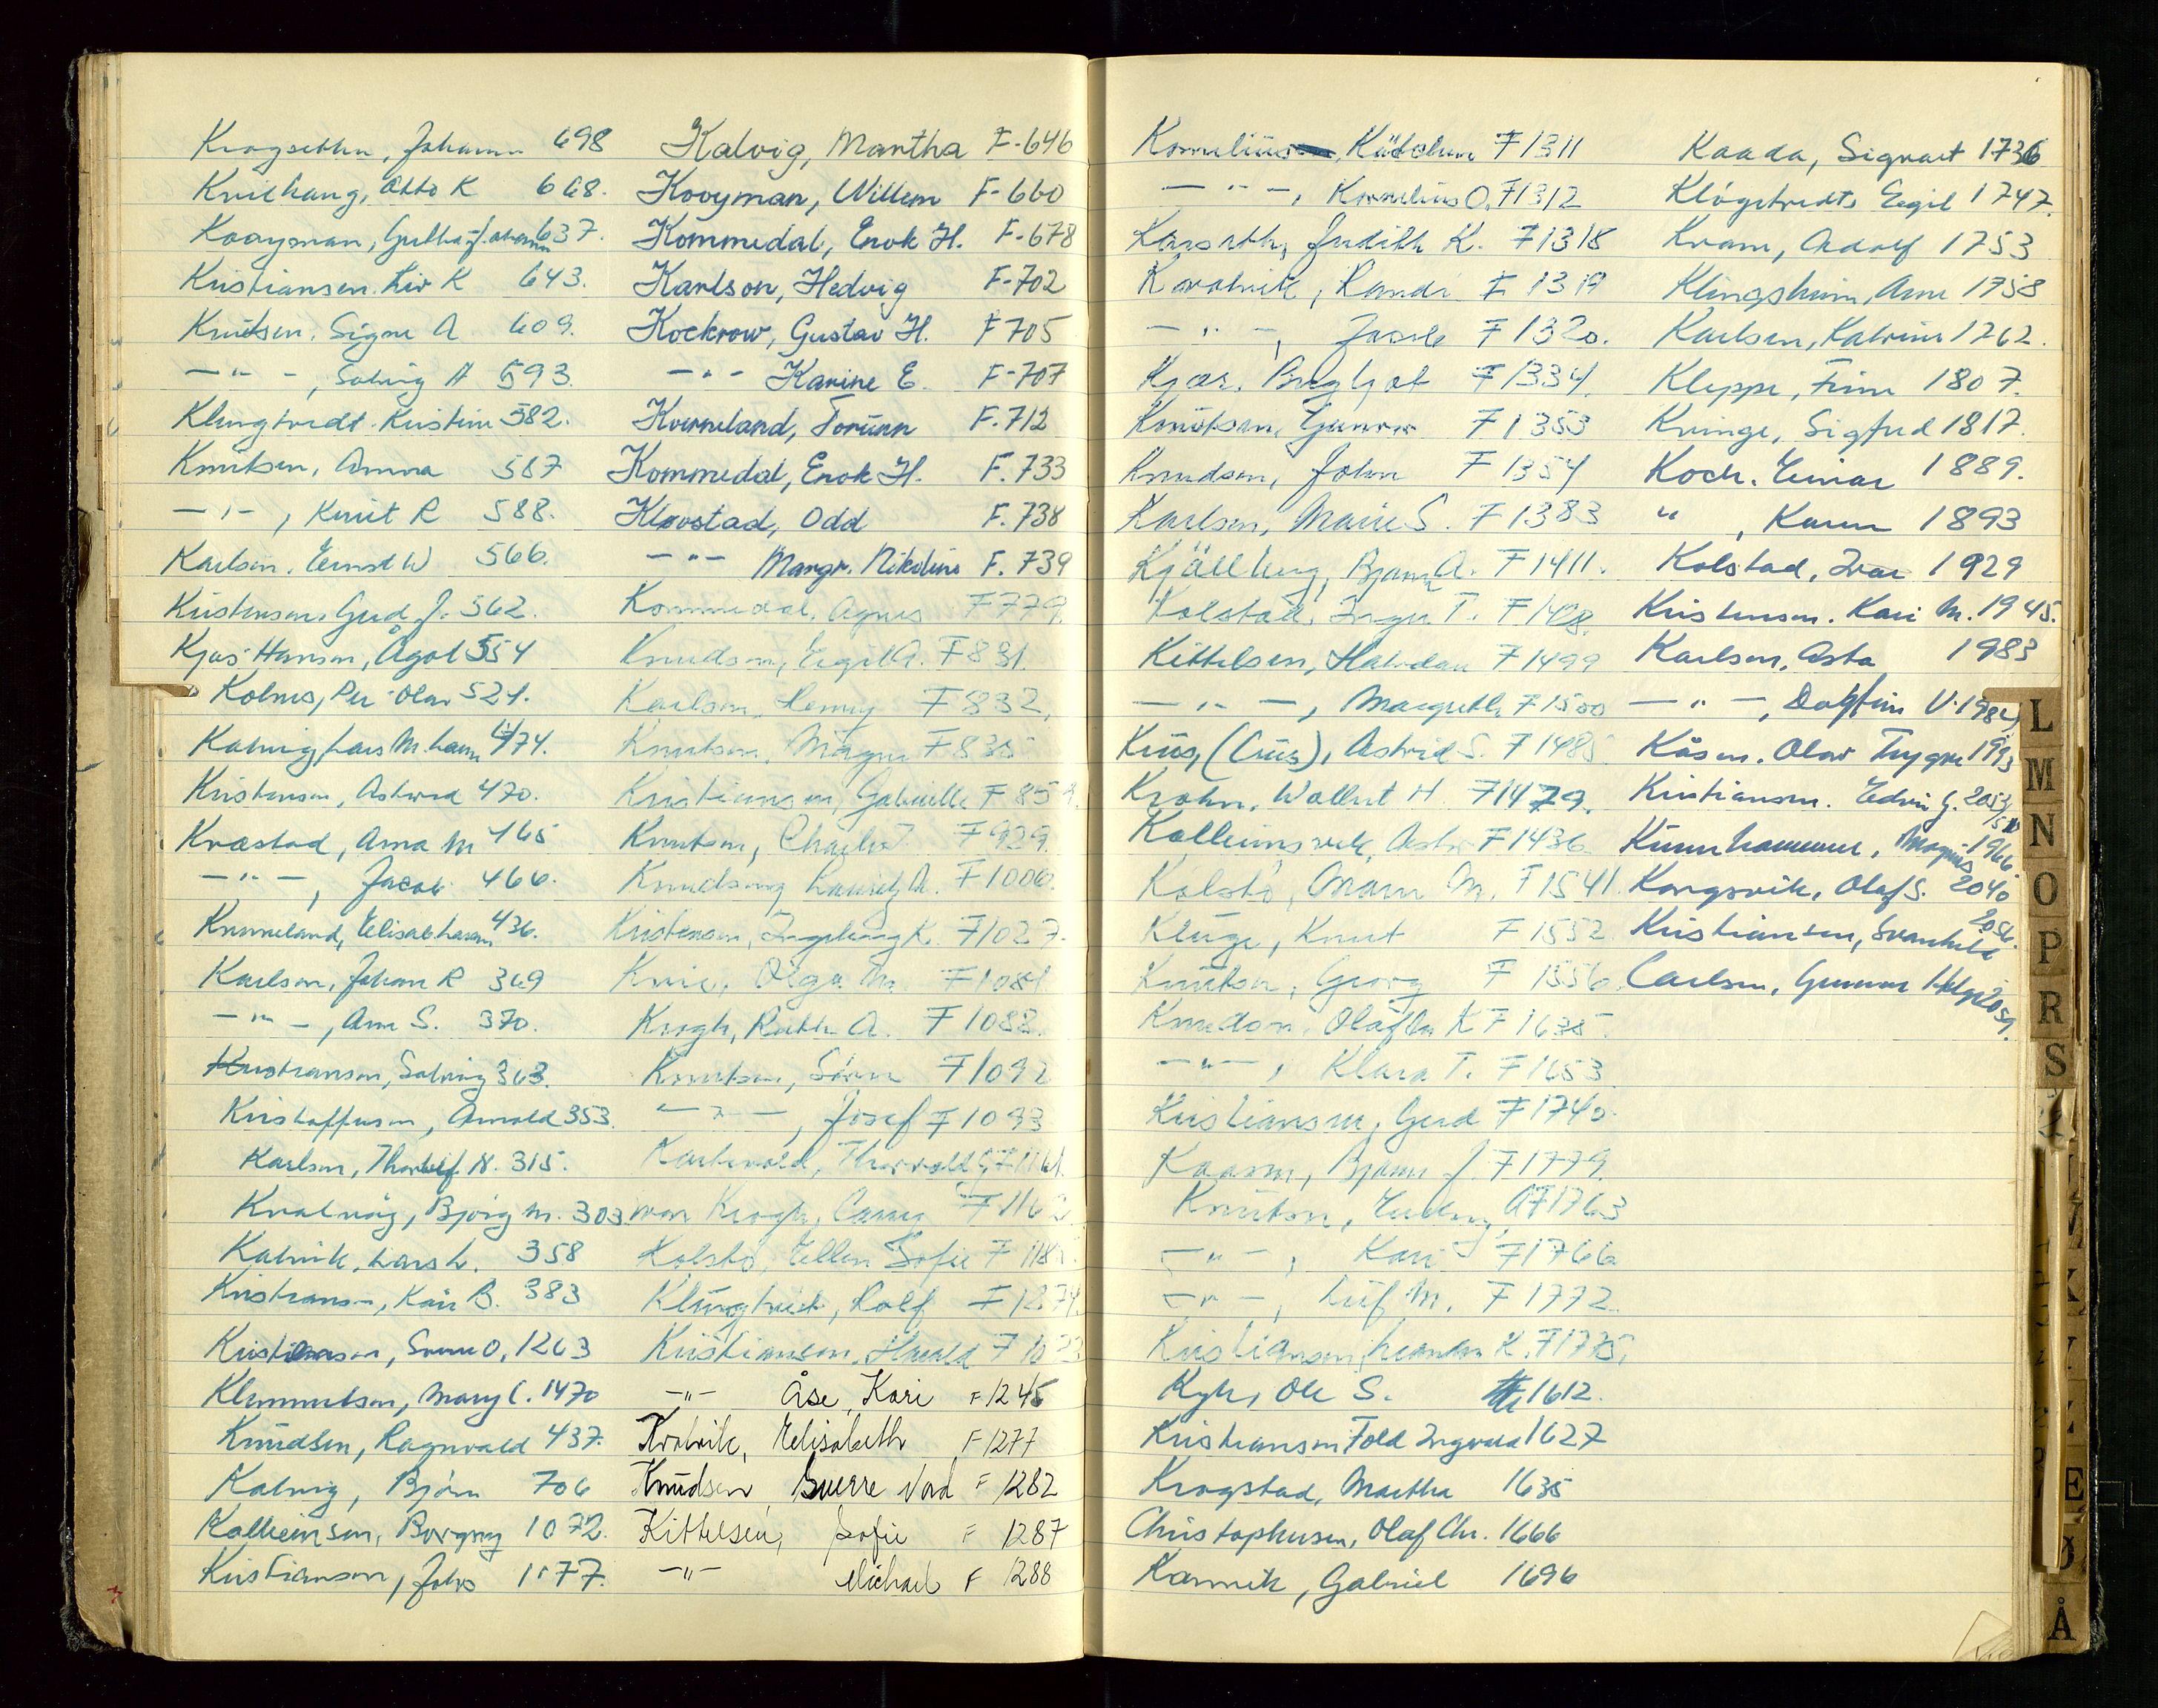 Krogsethn, Johann 698
Knudhaug, Otto K 668.
Kooyman, Gretha Johanna 637.
Kristiansen. Liv K 643.
Knutsen. Signe A 609.
—"—, Solveig H 593.
Klungtvedt. Kristine 582.
Knutsen, Anna 587
—"—, Knut R 588.
Karlsen. Ernst W 566.
Kristensen, Gerd J. 562.
Kjos-Hansen, Ågot 554
Kolnes, Per Olav 521.
Kalvig Lars M. 474.
Kristensen, Astrid 470.
Kvæstad, Anna M 465
—"—, Jacob 466.
Kverneland, Elisabeth 436.
Karlsen, Johan R 369
—"—, Ane S. 370.
Kristiansen, Solveig 363.
Kristoffersen, Arnold 353.
Karlsen, Thorleif N. 315.
Kvalvåg, Bjørg M. 303
Kalvik, Lars L. 358
Kristiansen, Kåre B. 383
Kristiansen, Svenn O. 1263
Klemmetsen, Mary C. 1470
Knudsen, Ragnvald 437.
Kalvig, Bjørn 706
Kalleiensen, Borgny 1072.
Kristiansen, Johs 1077.
Kalvig, Martha F-646
Kooyman, Willem F-660
Kommedal, Enok H. F-678
Karlson, Hedvig F-702
Kockrow, Gustav H. F 705
—"— Karine E. F-707
Kverneland, Torunn F.712
Kommedal, Enok H. F.733
Klovstad, Odd F.738
—"— Margr. Nikoline F.739
Kommedal, Agnes F 779.
Knudsen, Egil A. F 831.
Karlsen, Henny F 832.
Knutsen, Magne F 835
Kristiansen, Gabrielle F 85
Knutsen, Charles F 939.
Knudsen, Lauritz A. F 1006.
Kristensen, Ingeborg K. F 1027.
Kvie, Olga M. F 1081
Krogh, Ruth A. F 1088.
Knutsen, Sven F 1092
—"—, Josef F 1093
Karlsvold, Thorvald G. F 1161.
von Krogh, Conny F 116
Kolstø, Ellen Sofie F 118
Klungtveit, Rolf F 1274.
Kristiansen, Harald F 10
—"— Åse, Kari F 1245
Kvalvik, Elisabeth F 1277
Knudsen Sverre Nord F 1282
Kittelsen, Sofie F 1287
—"— Michael F 1288
Kornelius, Kätchen F 1311
—"—, Kornelius O. F 1312
Karsrth, Judith K. F 1318
Kvalvik, Randi F 1319
—"—, Jacob F 1320.
Kjær, Bergljot F 1334.
Knutsen, Gunvor F 1353
Knudsen, John F 1354
Karlsen, Marie S. F 1383
Kjällberg, Bjarne A. F 1411.
Kolstad, Inger T. F 1428.
Kittelsen, Halvdan F 1499
—"—, Margreth F 1500
Kius, (Cius), Astrid S. F 1485
Krohn, Wollert H. F 1479.
Kalleimsvik, F 1436
Kolstø, Maren M. F 1541.
Kluge, Knut F 1552
Knutsen, Georg F 1556
Knudsen, Oláfla K F 1635.
—"—, Klara T. F 1653
Kristiansen, Gerd F 1740.
Kaasen, Bjarne J. F 1779.
Knutsen, Erling A F 1763
—"—, Kari F 1766
—"—, Leif M. F 1772.
Kristiansen, Leander K. F 1775.
Kyh, Ole S. 1612.
Kristiansen Fold Ingvald 1627
Krogstad, Martha 1635
Christophersen, Olaf Chr. 1666
Karmvik, Gabriel 1696
Kaada, Sigvart 1736
Kløgetvedt, Egil 1747.
Kvam, Adolf 1753
Klingsheim, Arne 1758
Karlsen, Katrine 1762.
Kleppe, Finn 1807.
Kvinge, Sigfred 1817.
Koch. Einar 1889.
", Karen 1893
Kolstad, Ivar 1929
Kristensen. Kari M. 1945.
Karlsen, Asta 1983
—"—, Dagfinn V. 1984
Kåsen. Olav Trygve 1993
Kristiansen. Edvin G. 2053/58
Kummhammer, Magnus 1966.
Kongsvik, Olaf S. 2040
Kristiansen, Svanhild 2056.
Carlsen, Gunnar Helge 2059.
L
M
N
O
P
R
S
E
Ø
Å